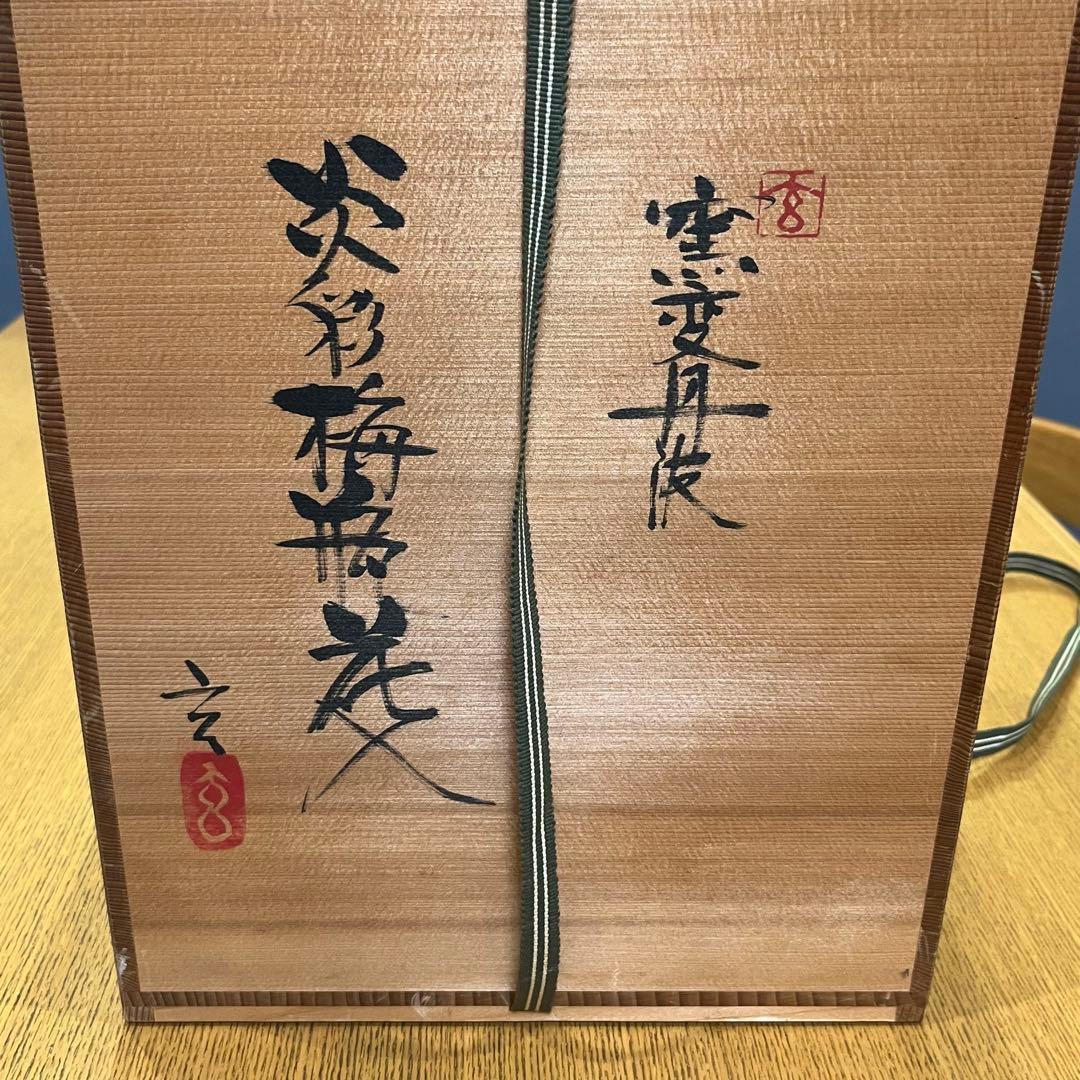 窯変丹波
炎彩梅瓶花入
玄